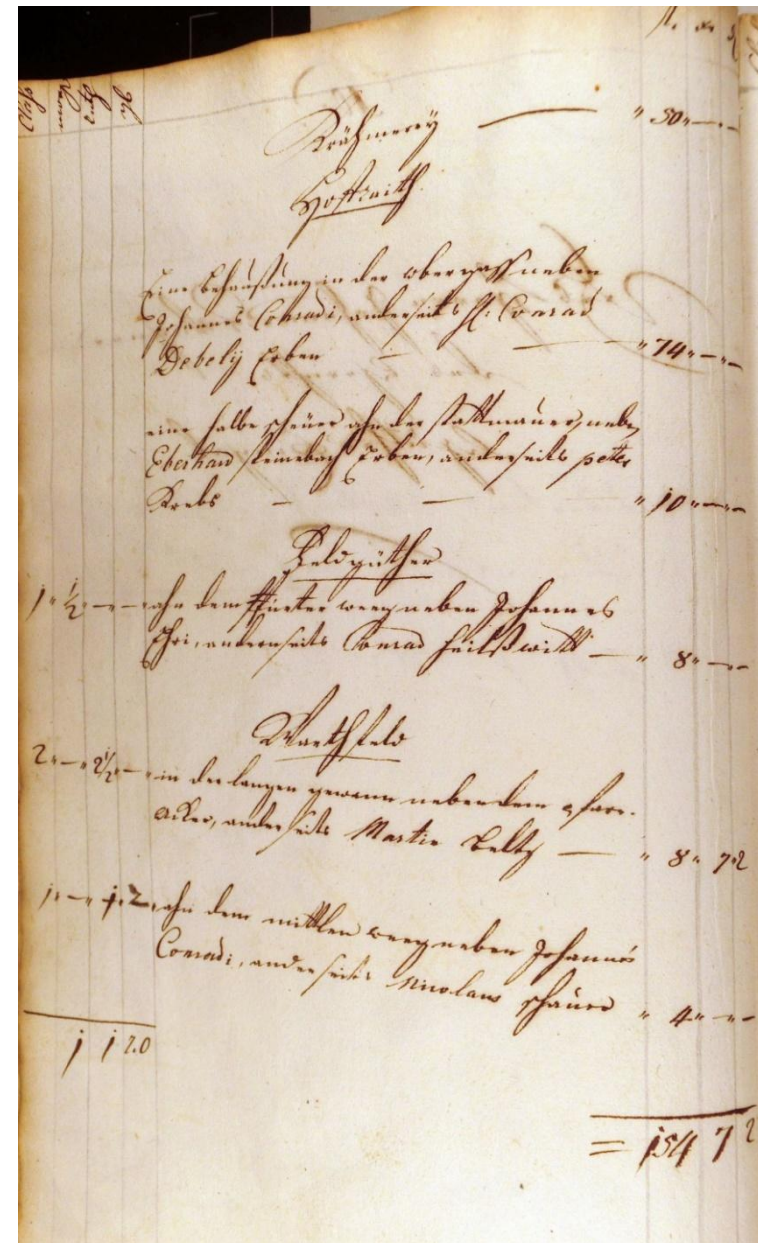 fl.
Krähmerey — " 50 " — " —
Hoffraith
Eine behaußung in der obergaß neben
Johannes Conradi, anderseits H: Conrad
Debely Erben — — " 74 " — " —
eine halbe scheuer ahn der stattmauer, neben
Eberhard steinebach Erben, anderseits peter
Krebs — — " 10 " — " —
Feldgüther
1 " ½ " — " — ahn dem weeg neben Johannes
anderseits Conrad — " 8 " — " —
Warthfeld
2 " — " 2½ " — " in der langen gewann neben dem pfarr-
acker, anderseits Martin Beltz — " 8 " 7 " 2
1 " — " 1 " 2 " ahn dem mittlen weeg neben Johannes
Conradi, anderseits Nicolaus schäuer " 4 " — " —
1 1 2.0
= 154 7 2